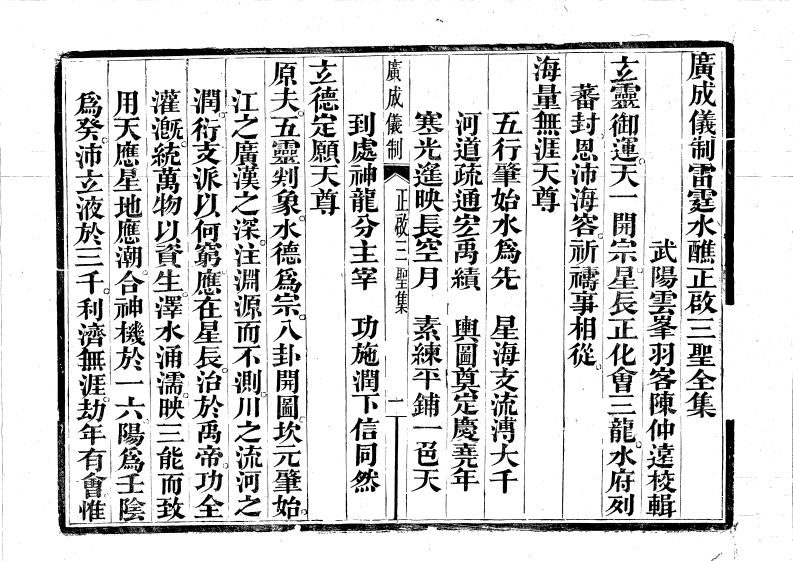 廣成儀制雷霆水醮正啟三聖全集
武陽雲峯羽客陳仲遠校輯
玄靈御運。天一開宗。星長正化會三龍。水府列
蕃封恩沛海容。祈禱事相從。
海量無涯天尊
五行肇始水為先　星海支流溥大千
河道疏通宏禹績　輿圖奠定慶堯年
寒光遙映長空月　素練平鋪一色天
廣成儀制　正啟三聖集　一
到處神龍分主宰　功施潤下信同然
玄德定願天尊
原夫。五靈判象。水德為宗。八卦開圖。坎元肇始。
江之廣漢之深。注淵源而不測。川之流河之
潤。衍支派以何窮。應在星辰。治於禹帝。功全
灌漑。統萬物以資生。澤水涌濡。映三能而致
用。天應星地應潮。合神機於一六。陽為壬陰
為癸。沛玄液於三千。利濟無涯。劫年有會。惟